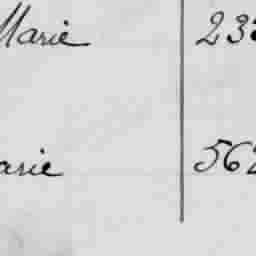 Marie 23
arie 562